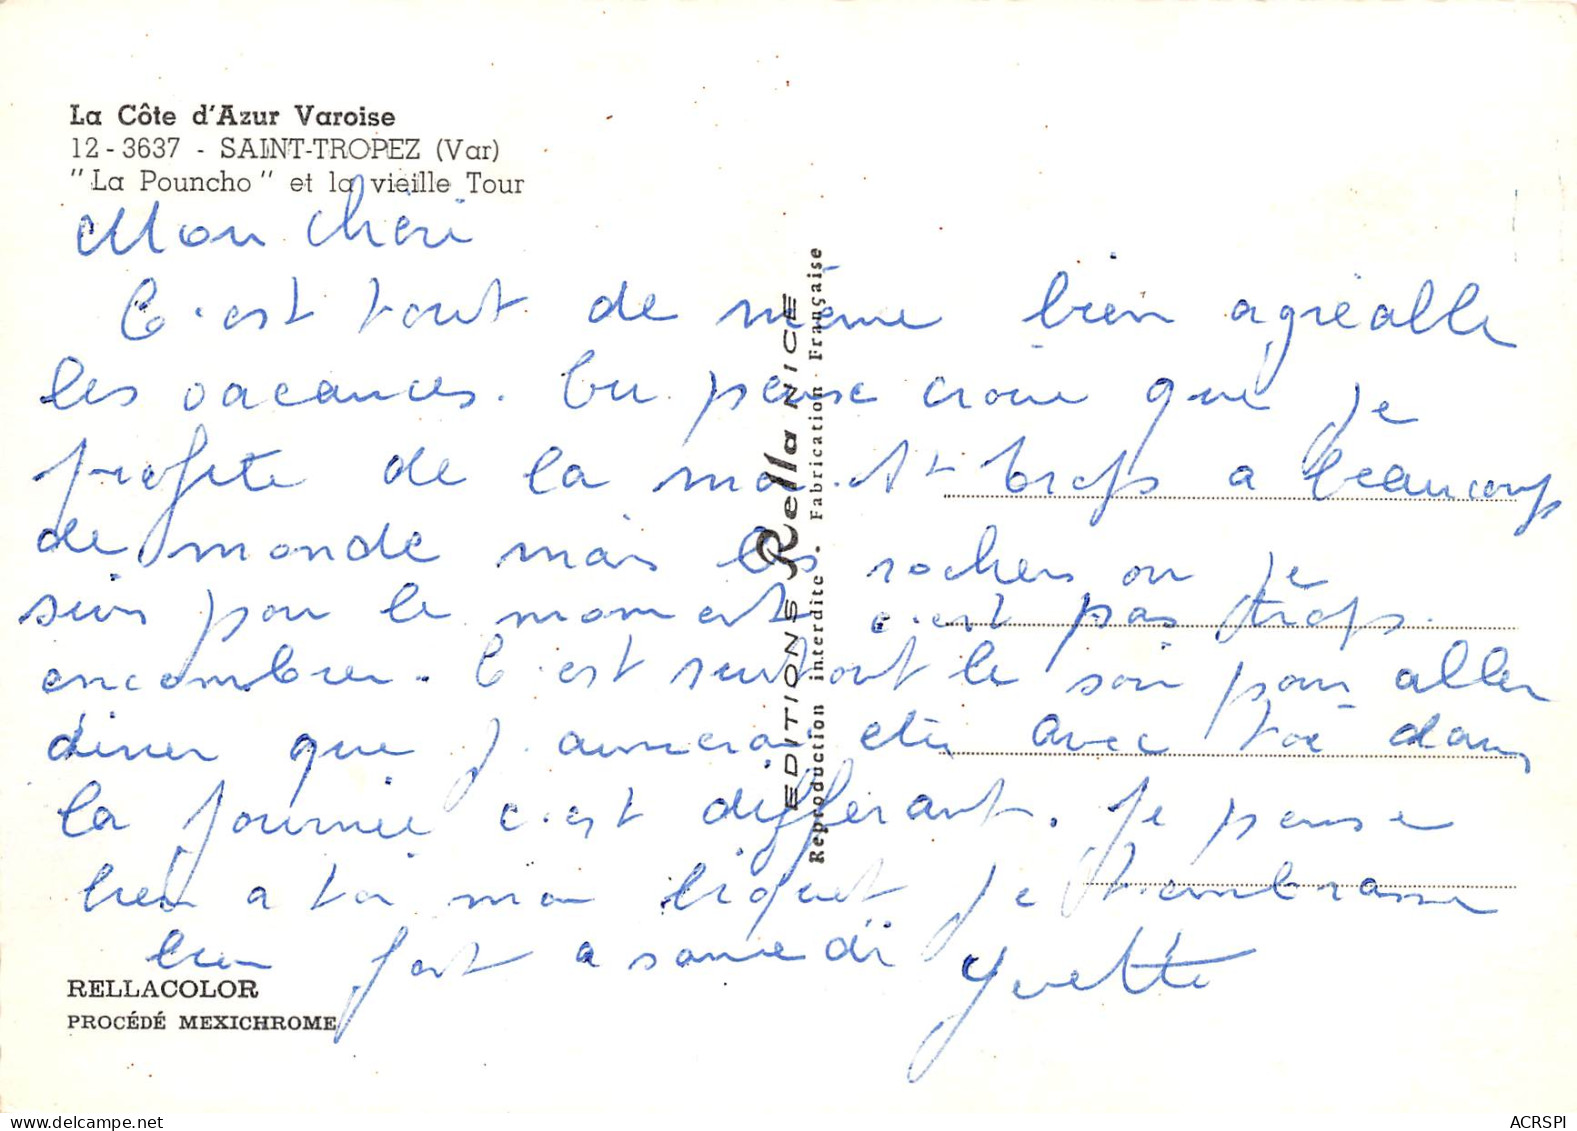 La Côte d'Azur Varoise
12 - 3637 - SAINT-TROPEZ (Var)
"La Pouncho" et la vieille Tour
Mon Chéri
C'est tout de même bien agréable
les vacances. Tu pense croire que je
profite de la mer. St Trop's a beaucoup
de monde mais les rochers ou je
suis pour le moment c'est pas trops
encombrer. C'est surtout le soir pour aller
diner que j'aimerai être avec toi dans
la journée c'est différant. Je pense
bien a toi mon biquet je t'embrasse
bien fort a samedi Yvette
EDITIONS Rella NICE
Reproduction interdite. Fabrication Française
RELLACOLOR
PROCÉDÉ MEXICHROME
ACRSPI